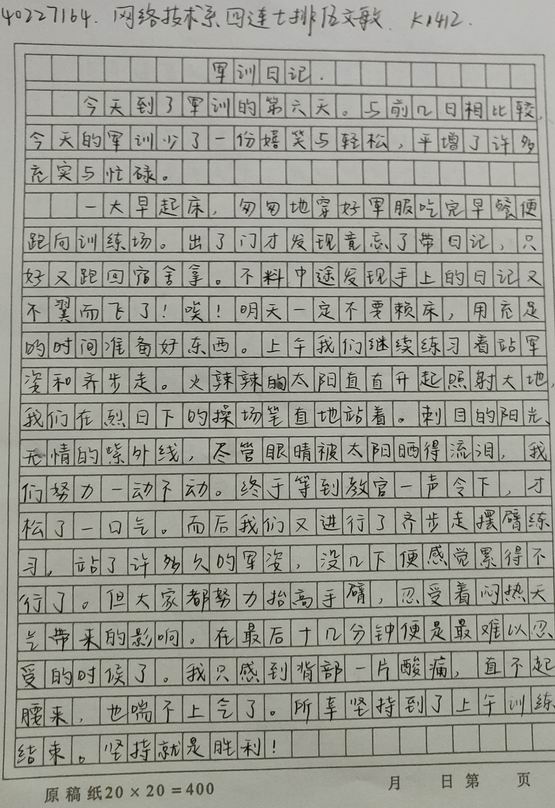 40227164. 网络技术系四连七排伍文敏. K1412.
军训日记.
今天到了军训的第六天。与前几日相比较,
今天的军训少了一份嬉笑与轻松,平增了许多
充实与忙碌。
一大早起床,匆匆地穿好军服吃完早餐便
跑向训练场。出了门才发现竟忘了带日记,只
好又跑回宿舍拿。不料中途发现手上的日记又
不翼而飞了!唉!明天一定不要赖床,用充足
的时间准备好东西。上午我们继续练习着站军
姿和齐步走。火辣辣的太阳直直升起照射大地,
我们在烈日下的操场笔直地站着。刺目的阳光、
无情的紫外线,尽管眼睛被太阳晒得流泪,我
们努力一动不动。终于等到教官一声令下,才
松了一口气。而后我们又进行了齐步走摆臂练
习,站了许多久的军姿,没几下便感觉累得不
行了。但大家都努力抬高手臂,忍受着闷热天
气带来的影响。在最后十几分钟便是最难以忍
受的时候了。我只感到背部一片酸痛,直不起
腰来,也喘不上气了。所幸坚持到了上午训练
结束。坚持就是胜利!
原稿纸20×20=400 月 日第 页